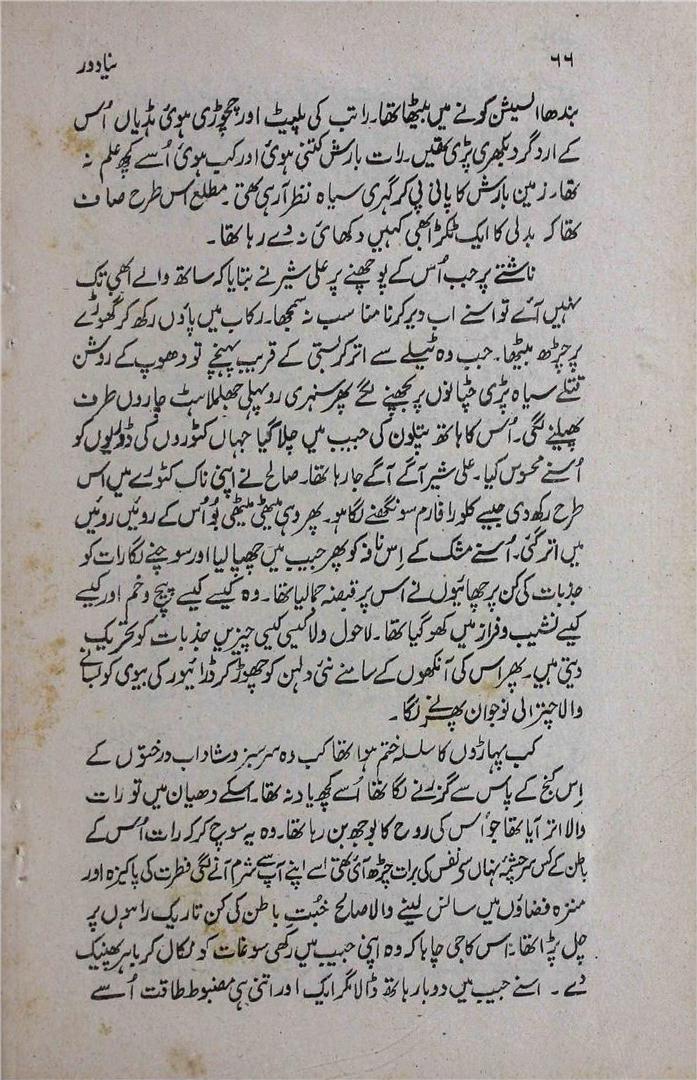 ۶۶
نیا دور
بندھا السیشن کونے میں بیٹھا تھا۔ راتب کی پلیٹ اور چچوڑی ہوئی ہڈیاں اُس
کے ارد گرد بکھری پڑی تھیں۔ رات بارش کتنی ہوئی اور کب ہوئی اُسے کچھ علم نہ
تھا۔ زمین بارش کا پانی پی کر گہری سیاہ نظر آ رہی تھی۔ مطلع اس طرح صاف
تھا کہ بدلی کا ایک ٹکڑا بھی کہیں دکھائی نہ دے رہا تھا۔
ناشتے پر جب اُس کے پوچھنے پر علی شیر نے بتایا کہ ساتھ والے ابھی تک
نہیں آئے تو اسنے اب دیر کرنا مناسب نہ سمجھا۔ رکاب میں پاؤں رکھ کر گھوڑے
پر چڑھ بیٹھا۔ جب وہ ٹیلے سے اتر کر بستی کے قریب پہنچے تو دھوپ کے روشن
تتلے سیاہ پڑی چٹانوں پر بچھنے لگے پھر سنہری روپہلی جھلملاہٹ چاروں طرف
پھیلنے لگی۔ اُس کا ہاتھ پتلون کی جیب میں چلا گیا جہاں کٹوروں کی ڈوریوں کو
اُسنے محسوس کیا۔ علی شیر آگے آگے جا رہا تھا۔ صالح نے اپنی ناک کٹورے میں اس
طرح رکھ دی جیسے کلورا فارم سونگھنے لگا ہو۔ پھر وہی میٹھی میٹھی بُو اُس کے روئیں روئیں
میں اتر گئی۔ اُسنے مشک کے اِس نافہ کو پھر جیب میں چھپا لیا اور سوچنے لگا رات کو
جذبات کی کن پرچھائیوں نے اس پر قبضہ جما لیا تھا۔ وہ کیسے کیسے پیچ و خم اور کیسے
کیسے نشیب و فراز میں کھو گیا تھا۔ لاحول ولا کیسی کیسی چیزیں جذبات کو تحریک
دیتی ہیں۔ پھر اس کی آنکھوں کے سامنے نئی دلہن کو چھوڑ کر ڈرائیور کی بیوی کو لبھانے
والا چترالی نوجوان پھرنے لگا۔
کب پہاڑوں کا سلسلہ ختم ہوا تھا کب وہ سرسبز و شاداب درختوں کے
اِس کنج کے پاس سے گزرنے لگا تھا اُسے کچھ یاد نہ تھا۔ اسکے دھیان میں تو رات
والا اتر آیا تھا جو اس کی روح کا بوجھ بن رہا تھا۔ وہ یہ سوچ کر کہ رات اُس کے
باطن کے کس سرچشمہ نہاں سے نفس کی برات چڑھ آئی تھی اسے اپنے آپ سے شرم آنے لگی فطرت کی پاکیزہ اور
منزہ فضاؤں میں سانس لینے والا صالح خبُتِ باطن کی کن تاریک راہوں پر
چل پڑا تھا۔ اس کا جی چاہا کہ وہ اپنی جیب میں رکھی سوغات کو نکال کر باہر پھینک
دے۔ اسنے جیب میں دوبارہ ہاتھ ڈالا مگر ایک اور اتنی ہی مضبوط طاقت اُسے